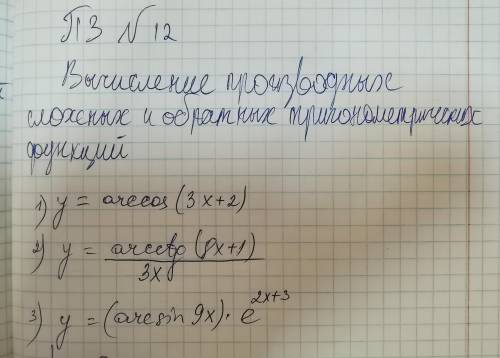 ПЗ №12
Вычисление производных
сложных и обратных тригонометрических
функций
1) y = arccos (3x+2)
2) y = arcctg (8x+1)
3x
3) y = (arcsin 9x) · e^2x+3